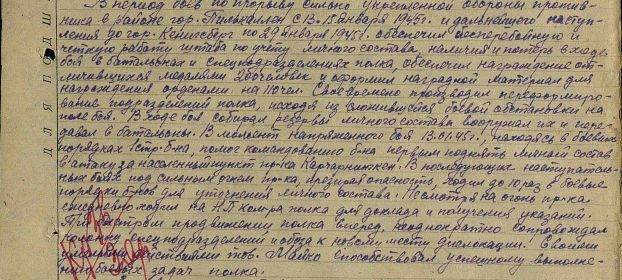 В период боев по прорыву сильно укрепленной обороны против-
ника в районе гор. Пилькаллен с 13-15 января 1945г. и дальнейшего наступ-
ления до гор. Кенигсберг по 29 января 1945г. обеспечил бесперебойную и
четкую работу штаба по учету личного состава, наличия и потерь в ходе
боя в батальонах и спецподразделениях полка, обеспечил награждение от-
личившихся медалями 200 человек и оформил наградной материал для
награждения орденами на 110 чел. Своевремено производил переформиро-
вание подразделений полка, исходя из сложившейся боевой обстановки на
поле боя. В ходе боя собирал резервы личного состава вооружал их и пере-
давал в батальоны. В момент напряженного боя 13.01.45г., находясь в боевых
порядках 1 стр. б-на, помог командованию б-на первым поднять личный состав
в атаку за населенный пункт пр-ка. В последующих наступатель-
ных боях под сильным огнем пр-ка, презирая опасность, ходил до 10 раз в боевые
порядки б-нов для уточнения личного состава. Несмотря на огонь пр-ка
ежедневно ходил на НП ком-ра полка для доклада и получения указаний.
При быстром продвижении полка вперед, неоднократно сопровождал
колонну спецподразделений и обоза к новому месту дислокации. Своими
умелыми действиями тов. способствовал успешному выполне-
нию боевых задач полка.
ДЛЯ ПОДШ